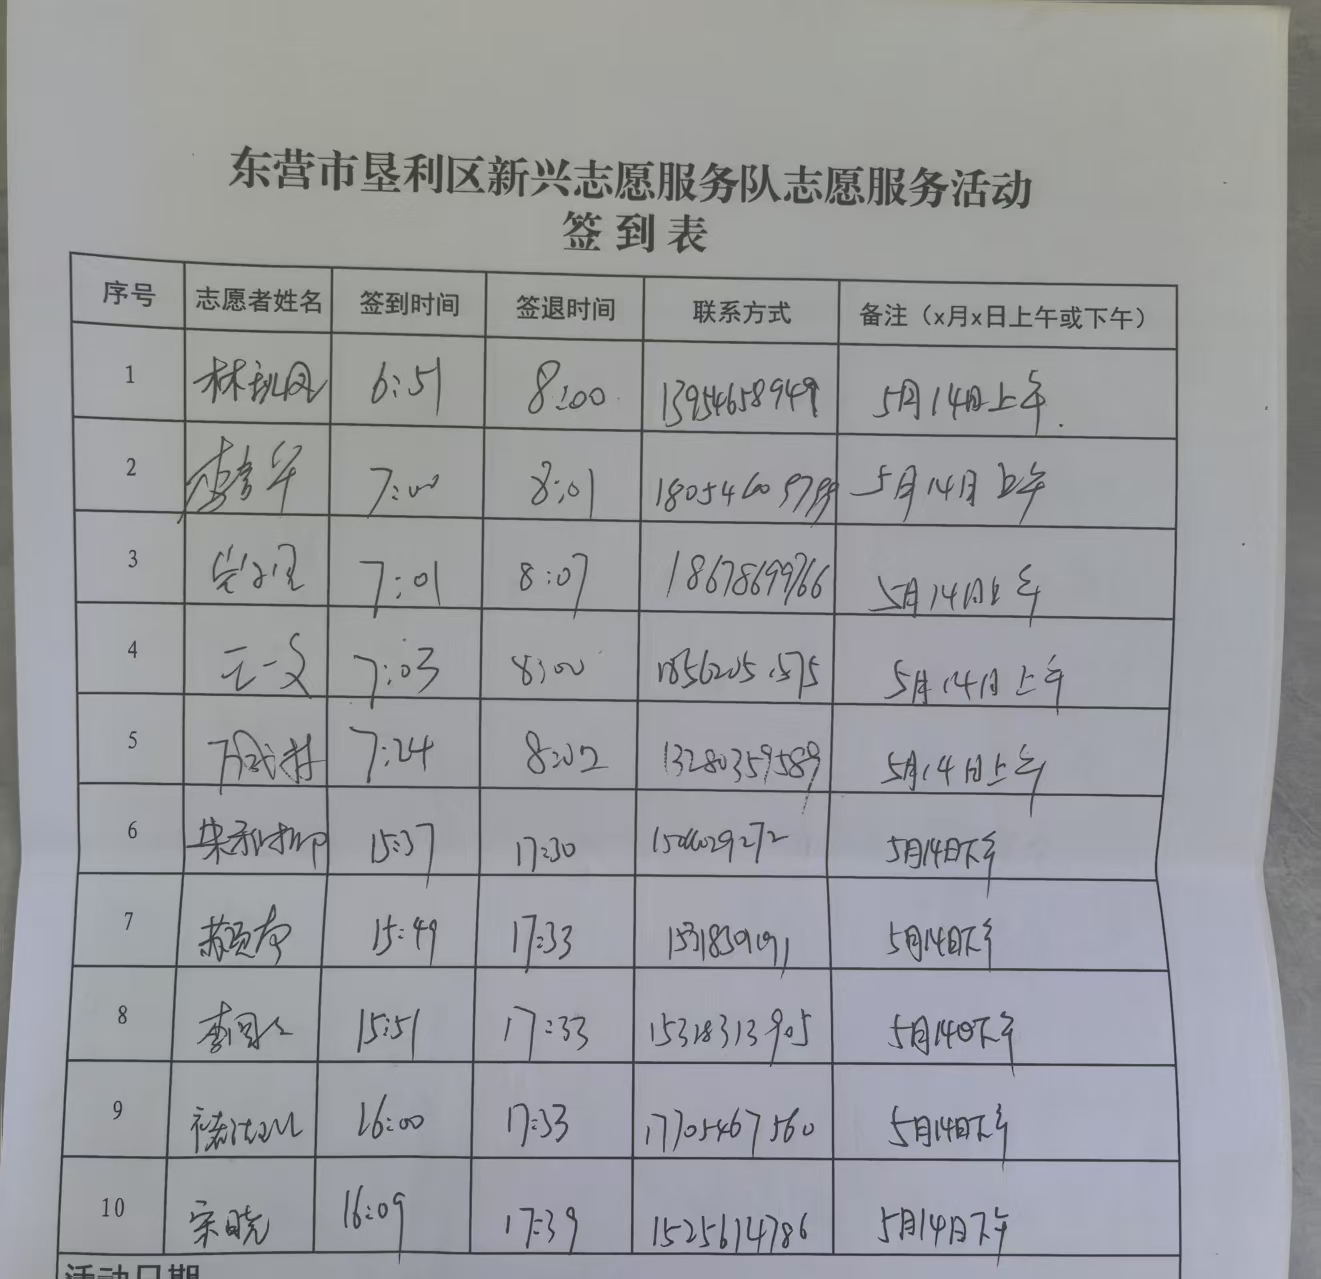 东营市垦利区新兴志愿服务队志愿服务活动
签到表
序号 志愿者姓名 签到时间 签退时间 联系方式 备注（x月x日上午或下午）
1 6:51 8:00 13954658949 5月14日上午
2 7:00 8:01 5月14日上午
3 7:01 8:07 18678699766 5月14日上午
4 7:03 8:00 5月14日上午
5 7:24 8:02 13280359589 5月14日上午
6 15:37 17:30 5月14日下午
7 15:49 17:33 5月14日下午
8 15:51 17:33 15318313905 5月14日下午
9 16:00 17:33 17705467560 5月14日下午
10 宋晓 16:09 17:39 1525614786 5月14日下午
活动日期